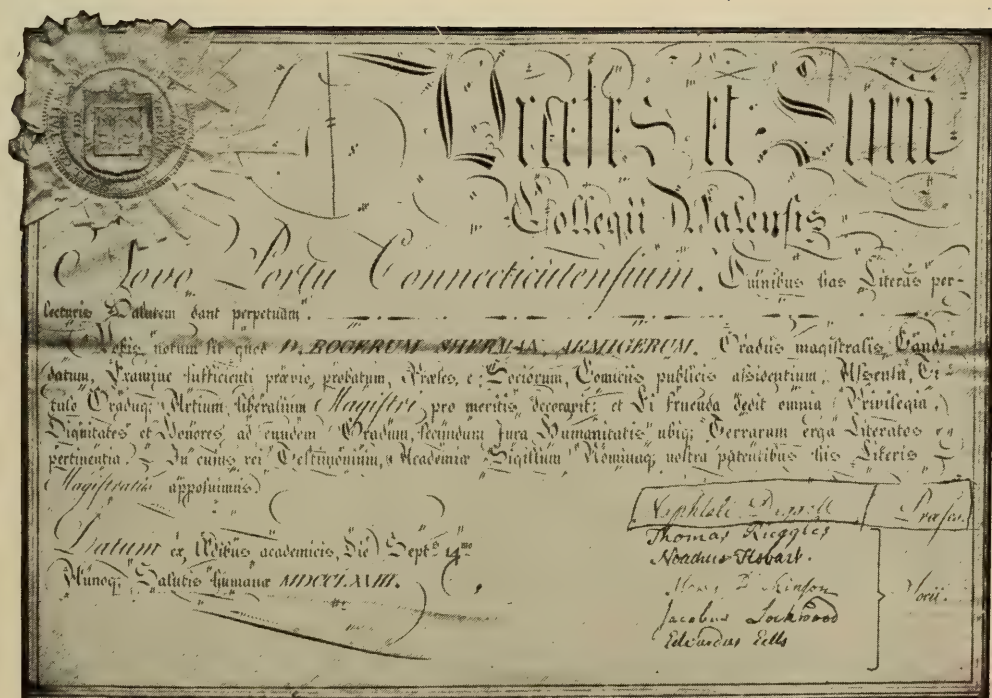 Præses et Socii
Collegii Yalensis
Novo Portu Connecticutensium. Omnibus has Literas per-
lecturis Salutem dant perpetuam.
Vobis notum sit quod D. ROGERUM SHERMAN, ARMIGERUM. Gradus magistralis Candi-
datum, Examine sufficienti prævio, probatum, Præses, Sociorum, Comitiis publicis assidentium, Assensu, Ti-
tulo Graduq; Artium liberalium Magistri, pro meritis decoravit; et Ei fruenda dedit omnia Privilegia,
Dignitates et Honores, ad eundem Gradum, secundum Jura Humanitatis ubiq; Terrarum erga Literatos
pertinentia. In cujus rei Testimonium, Academiæ Sigillum Nominaq; nostra patentibus his Literis
Magistralis apposuimus.
Datum ex, Ædibus academicis, Die Septs 4mo
Annoq; Salutis humanæ MDCCLXVIII.
Naphtali Daggett Præses.
Thomas Ruggles
Noadias Hobart.
Jacobus Lockwood Socii.
Edvardus Eells